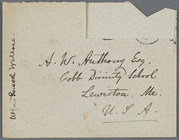 A. W. Anthony Esq.
Cobb Divinity School
Lewiston, Me.
U. S. A.
Alfred Russel Wallace